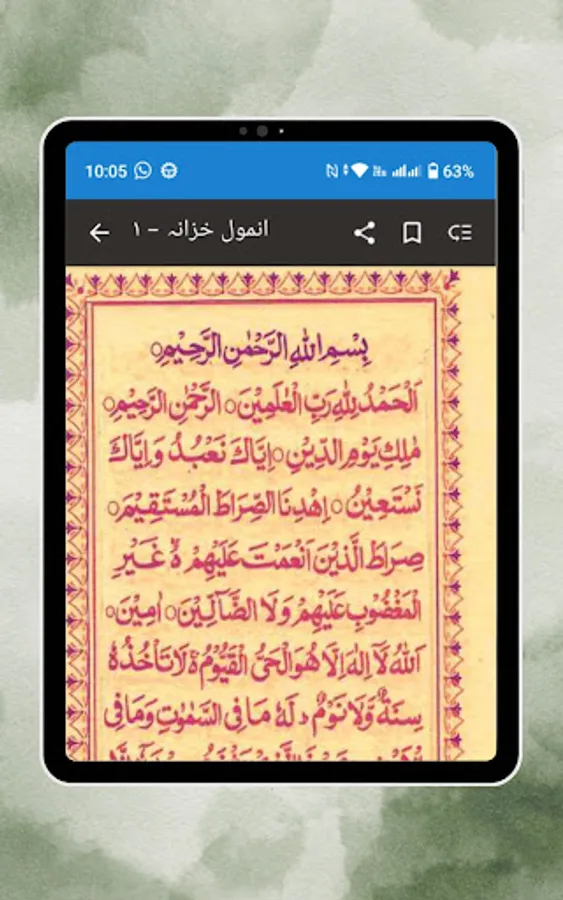 10:05 63%
انمول خزانہ – ۱
بِسْمِ اللهِ الرَّحْمٰنِ الرَّحِيْمِ○
اَلْحَمْدُ لِلّٰهِ رَبِّ الْعٰلَمِيْنَ○ الرَّحْمٰنِ الرَّحِيْمِ○
مٰلِكِ يَوْمِ الدِّيْنِ○ اِيَّاكَ نَعْبُدُ وَاِيَّاكَ
نَسْتَعِيْنُ○ اِهْدِنَا الصِّرَاطَ الْمُسْتَقِيْمَ○
صِرَاطَ الَّذِيْنَ اَنْعَمْتَ عَلَيْهِمْ ۙ غَيْرِ
الْمَغْضُوْبِ عَلَيْهِمْ وَلَا الضَّآلِّيْنَ○ اٰمِيْنَ○
اَللهُ لَآ اِلٰهَ اِلَّا هُوَ الْحَىُّ الْقَيُّوْمُ ۚ لَا تَاْخُذُهٗ
سِنَةٌ وَّلَا نَوْمٌ ؕ لَهٗ مَا فِى السَّمٰوٰتِ وَمَا فِى